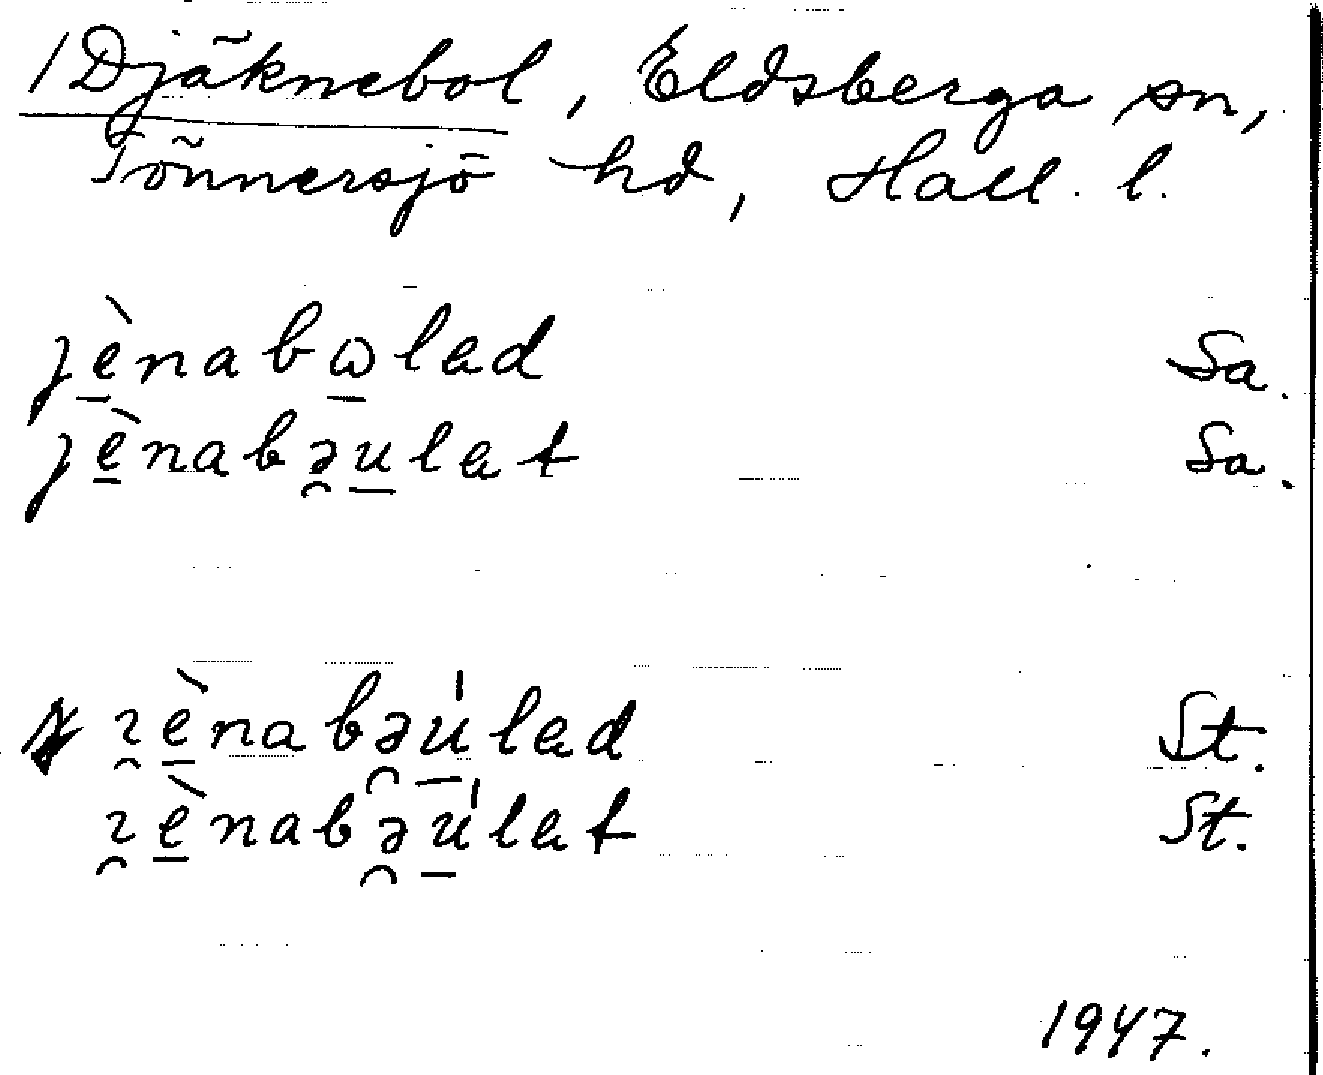 /Djäknebol, Eldsberga sn,
Tönnersjö hd, Hall. l.
jè̠nabω̠lad Sa.
jè̠nabə̯u̠lat Sa.
ɿ̯è̠nabə̯u̠̍lad St.
ɿ̯è̠nabə̯u̠̍lat St.
1947.